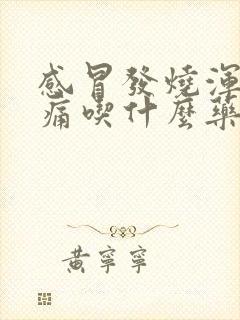 感冒發燒渾
痛喫什麼藥
黃寧寧